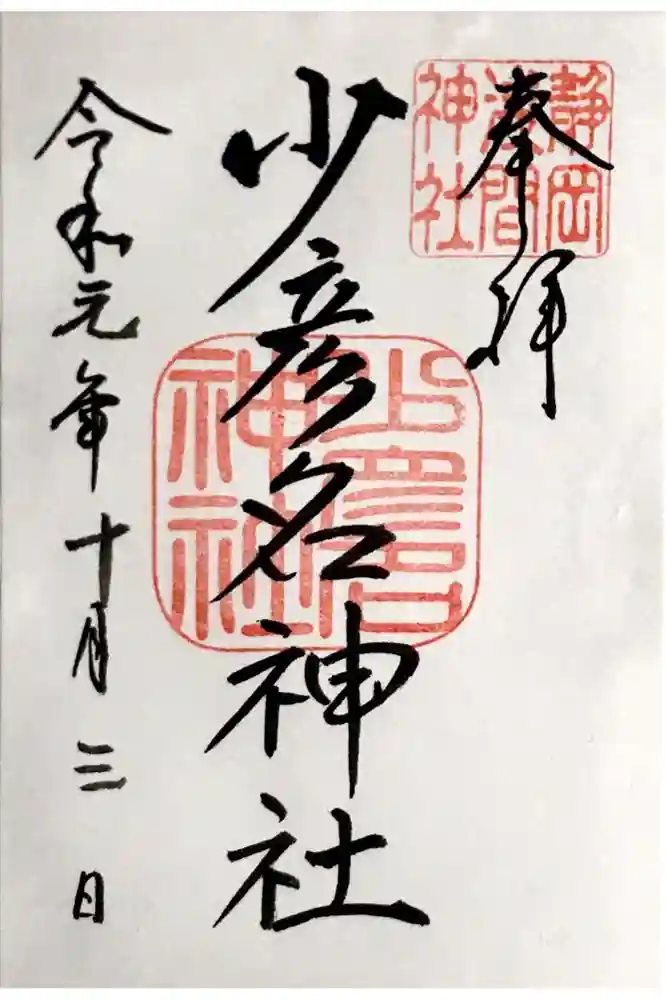 奉拝
静岡
浅間
神社
少彦名神社
少彦名
神社
令和元年十月三日